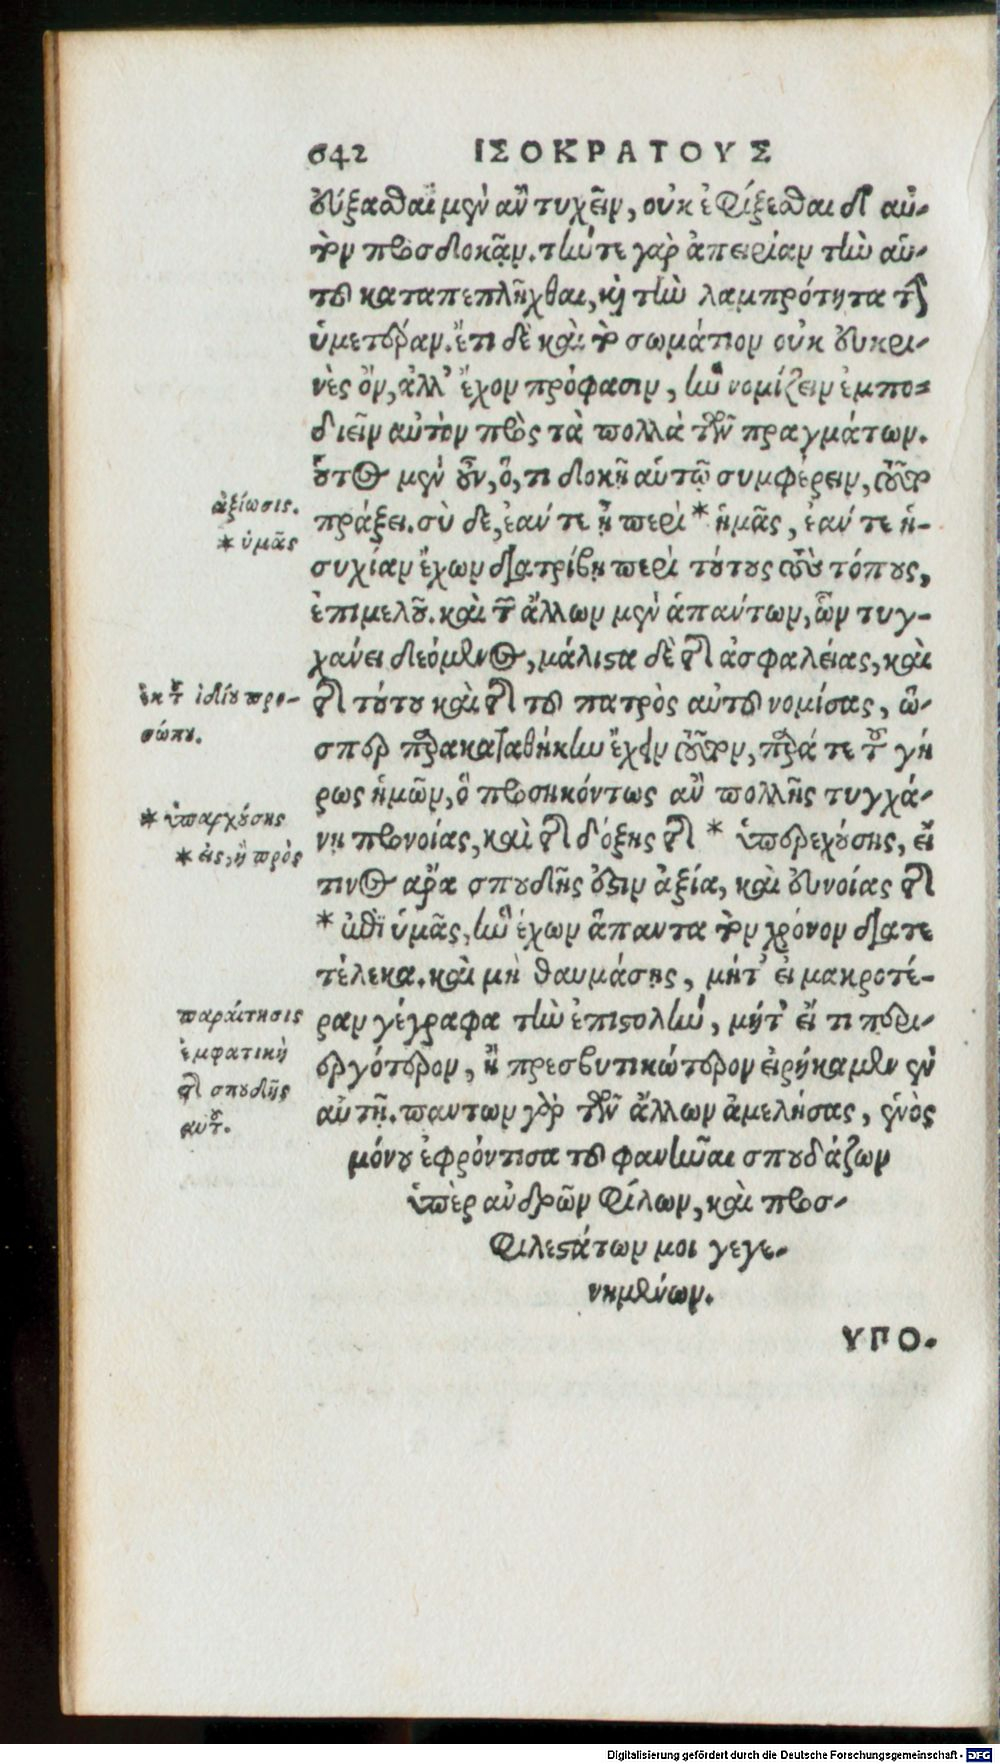 642 ΙΣΟΚΡΑΤΟΥΣ
εὔξασθαι μὲν ἂν τυχεῖν, οὐκ ἐφίξεσθαι δ' αὐ-
τὸν προσδοκᾷν. τήν τε γὰρ ἀπειρίαν τὴν αὑ-
τοῦ καταπεπλῆχθαι, καὶ τὴν λαμπρότητα τὴν
ὑμετέραν. ἔτι δὲ καὶ τὸ σωμάτιον οὐκ εὐκρι-
νὲς ὂν, ἀλλ' ἔχον πρόφασιν, ἣν νομίζειν ἐμπο-
διεῖν αὐτὸν πρὸς τὰ πολλὰ τῶν πραγμάτων.
οὗτος μὲν οὖν, ὅ, τι δοκῇ αὑτῷ συμφέρειν, τοῦτο
πράξει. σὺ δὲ, ἐάν τε ᾖ περὶ * ἡμᾶς, ἐάν τε ἡ-
συχίαν ἔχων διατρίβῃ περὶ τούτους τοὺς τόπους,
ἐπιμελοῦ. καὶ τῶν ἄλλων μὲν ἁπάντων, ὧν τυγ-
χάνει δεόμενος, μάλιστα δὲ τῆς ἀσφαλείας, καὶ
τῆς τούτου καὶ τῆς τοῦ πατρὸς αὐτοῦ νομίσας, ὥ-
σπερ παρακαταθήκην ἔχειν τοῦτον, παρά τε τοῦ γή
ρως ἡμῶν, ὃ προσηκόντως ἂν πολλῆς τυγχά-
νῃ προνοίας, καὶ τῆς δόξης τῆς * ὑπερεχούσης, εἴ
τινος ἄρα σπουδῆς ἐστιν ἀξία, καὶ εὐνοίας τῆς
* ἐπὶ ὑμᾶς, ἣν ἔχων ἅπαντα τὸν χρόνον διατε
τέλεκα. καὶ μὴ θαυμάσῃς, μήτ' εἰ μακροτέ-
ραν γέγραφα τὴν ἐπιστολήν, μήτ' εἴ τι περι-
εργότερον, ἢ πρεσβυτικώτερον εἰρήκαμεν ἐν
αὐτῇ. παντων γὰρ τῶν ἄλλων ἀμελήσας, ἑνὸς
μόνου ἐφρόντισα τοῦ φανῆναι σπουδάζων
ὑπὲρ ἀνδρῶν φίλων, καὶ προσ-
φιλεστάτων μοι γεγε-
νημένων.
ΥΠΟ-
ἀξίωσις.
* ὑμᾶς
ἐκ τοῦ ἰδίου προ-
σώπου.
* ὑπαρχούσης
* εἰς, ἢ πρὸς
παραίτησις
ἐμφατικὴ
τῆς σπουδῆς
αὐτοῦ.
Digitalisierung gefördert durch die Deutsche Forschungsgemeinschaft - DFG